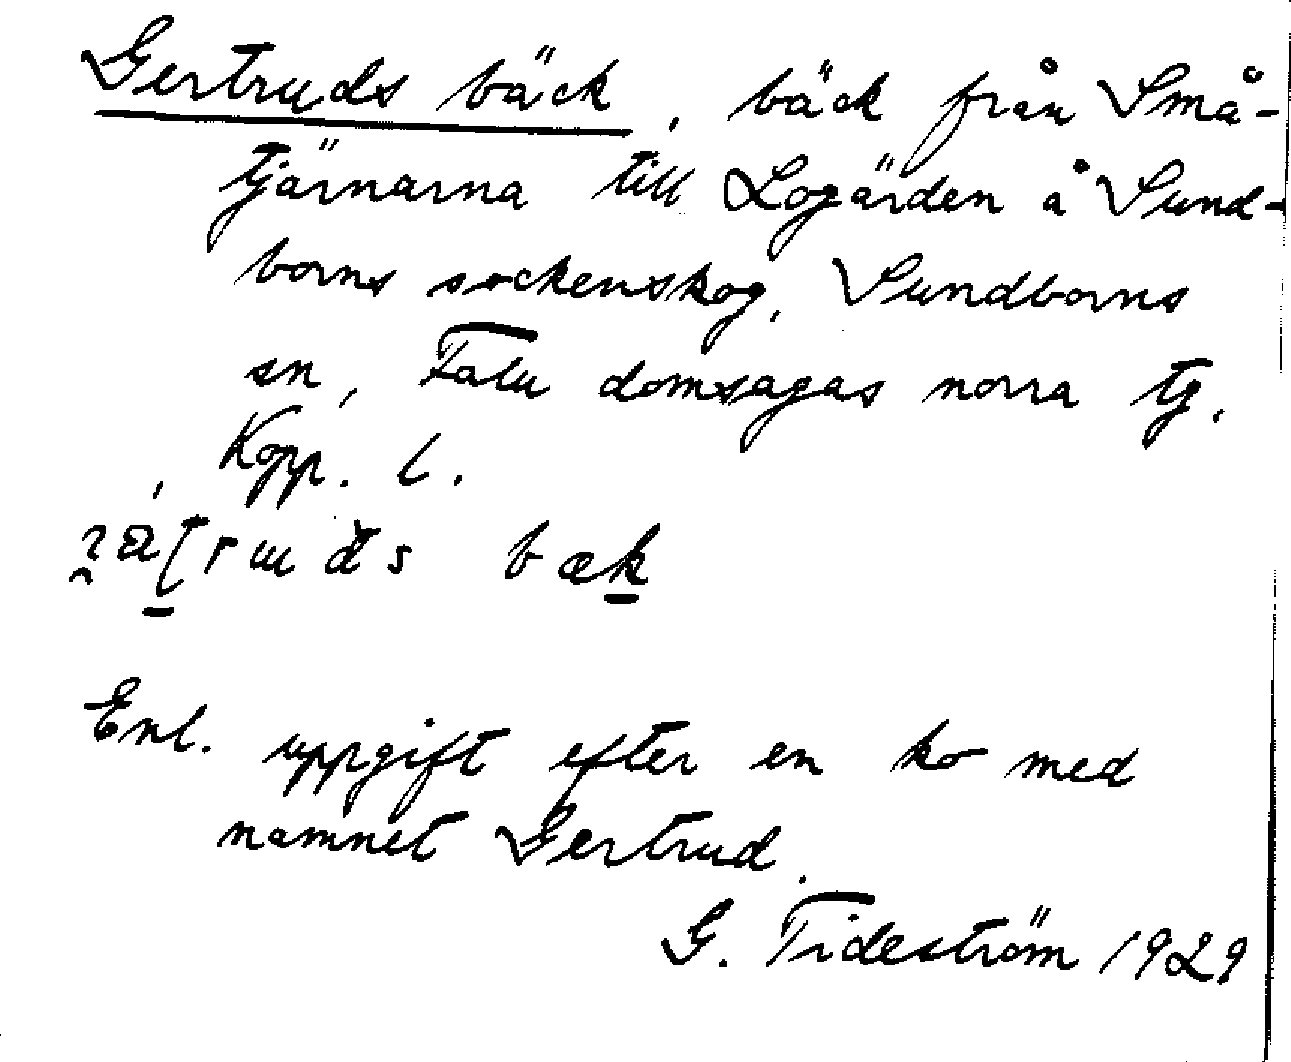 Gertruds bäck, bäck från Små-
tjärnarna till Logärden å Sund-
borns sockenskog, Sundborns
sn, Falu domsagas norra tg.
Kopp. l.
bæk
Enl. uppgift efter en ko med
namnet Gertrud.
G. Tideström 1929